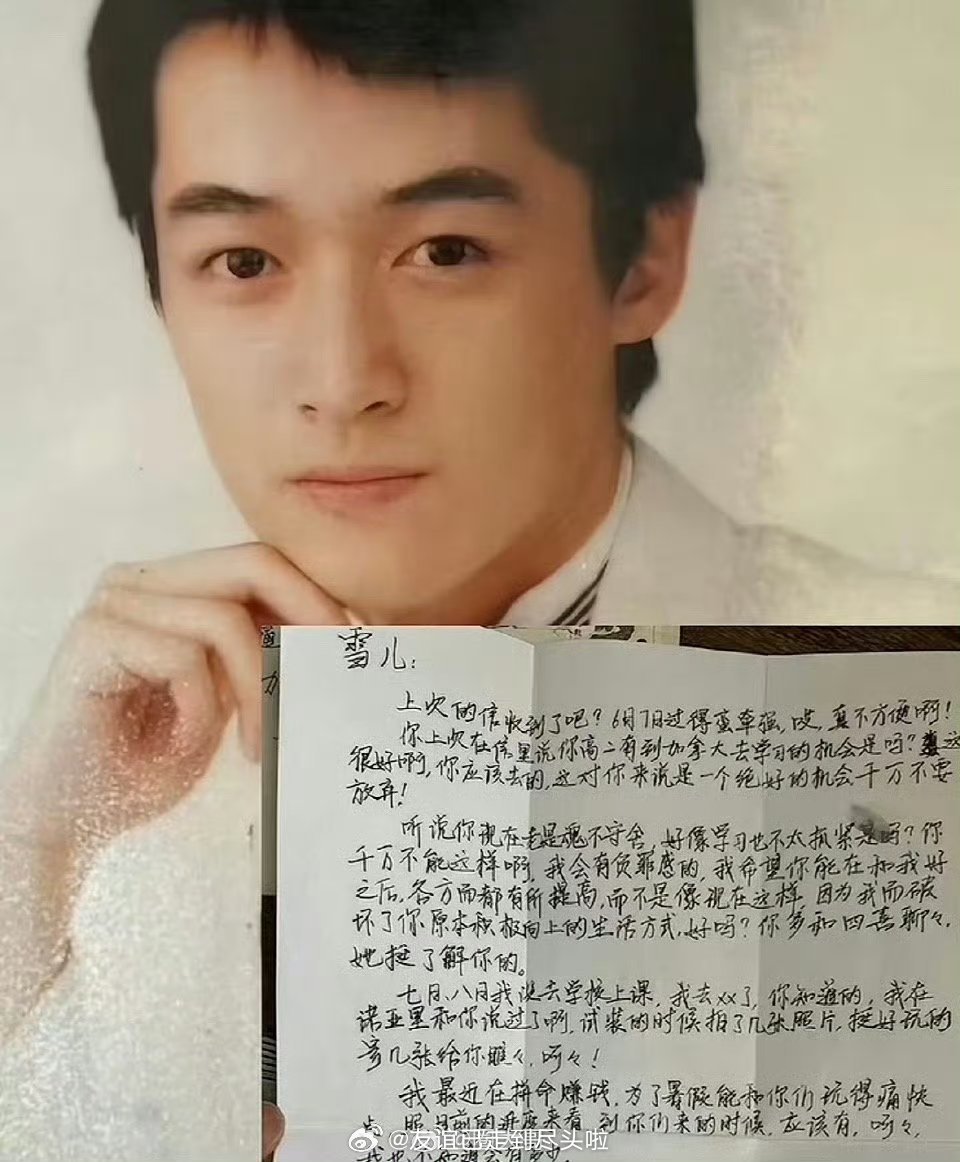 雪儿：
上次的信收到了吧？6月7日过得蛮牵强，哎，真不方便啊！
你上次在信里说你高二有到加拿大去学习的机会是吗？这
很好啊，你应该去的，这对你来说是一个绝好的机会千万不要
放弃！
听说你现在老是魂不守舍，好像学习也不太抓紧是吗？你
千万不能这样啊，我会有负罪感的，我希望你能在和我好
之后，各方面都有所提高，而不是像现在这样，因为我而破
坏了你原本积极向上的生活方式，好吗？你多和四喜聊々，
她挺了解你的。
七月、八月我没去学校上课，我去xx了，你知道的，我在
诺亚里和你说过了啊，试装的时候拍了几张照片，挺好玩的
寄几张给你瞧々，呵々！
我最近在拼命赚钱，为了暑假能和你们玩得痛快
点，照目前的进度来看，到你们来的时候，应该有，呵々，
我也不知道会有多少。
@友谊已走到尽头啦